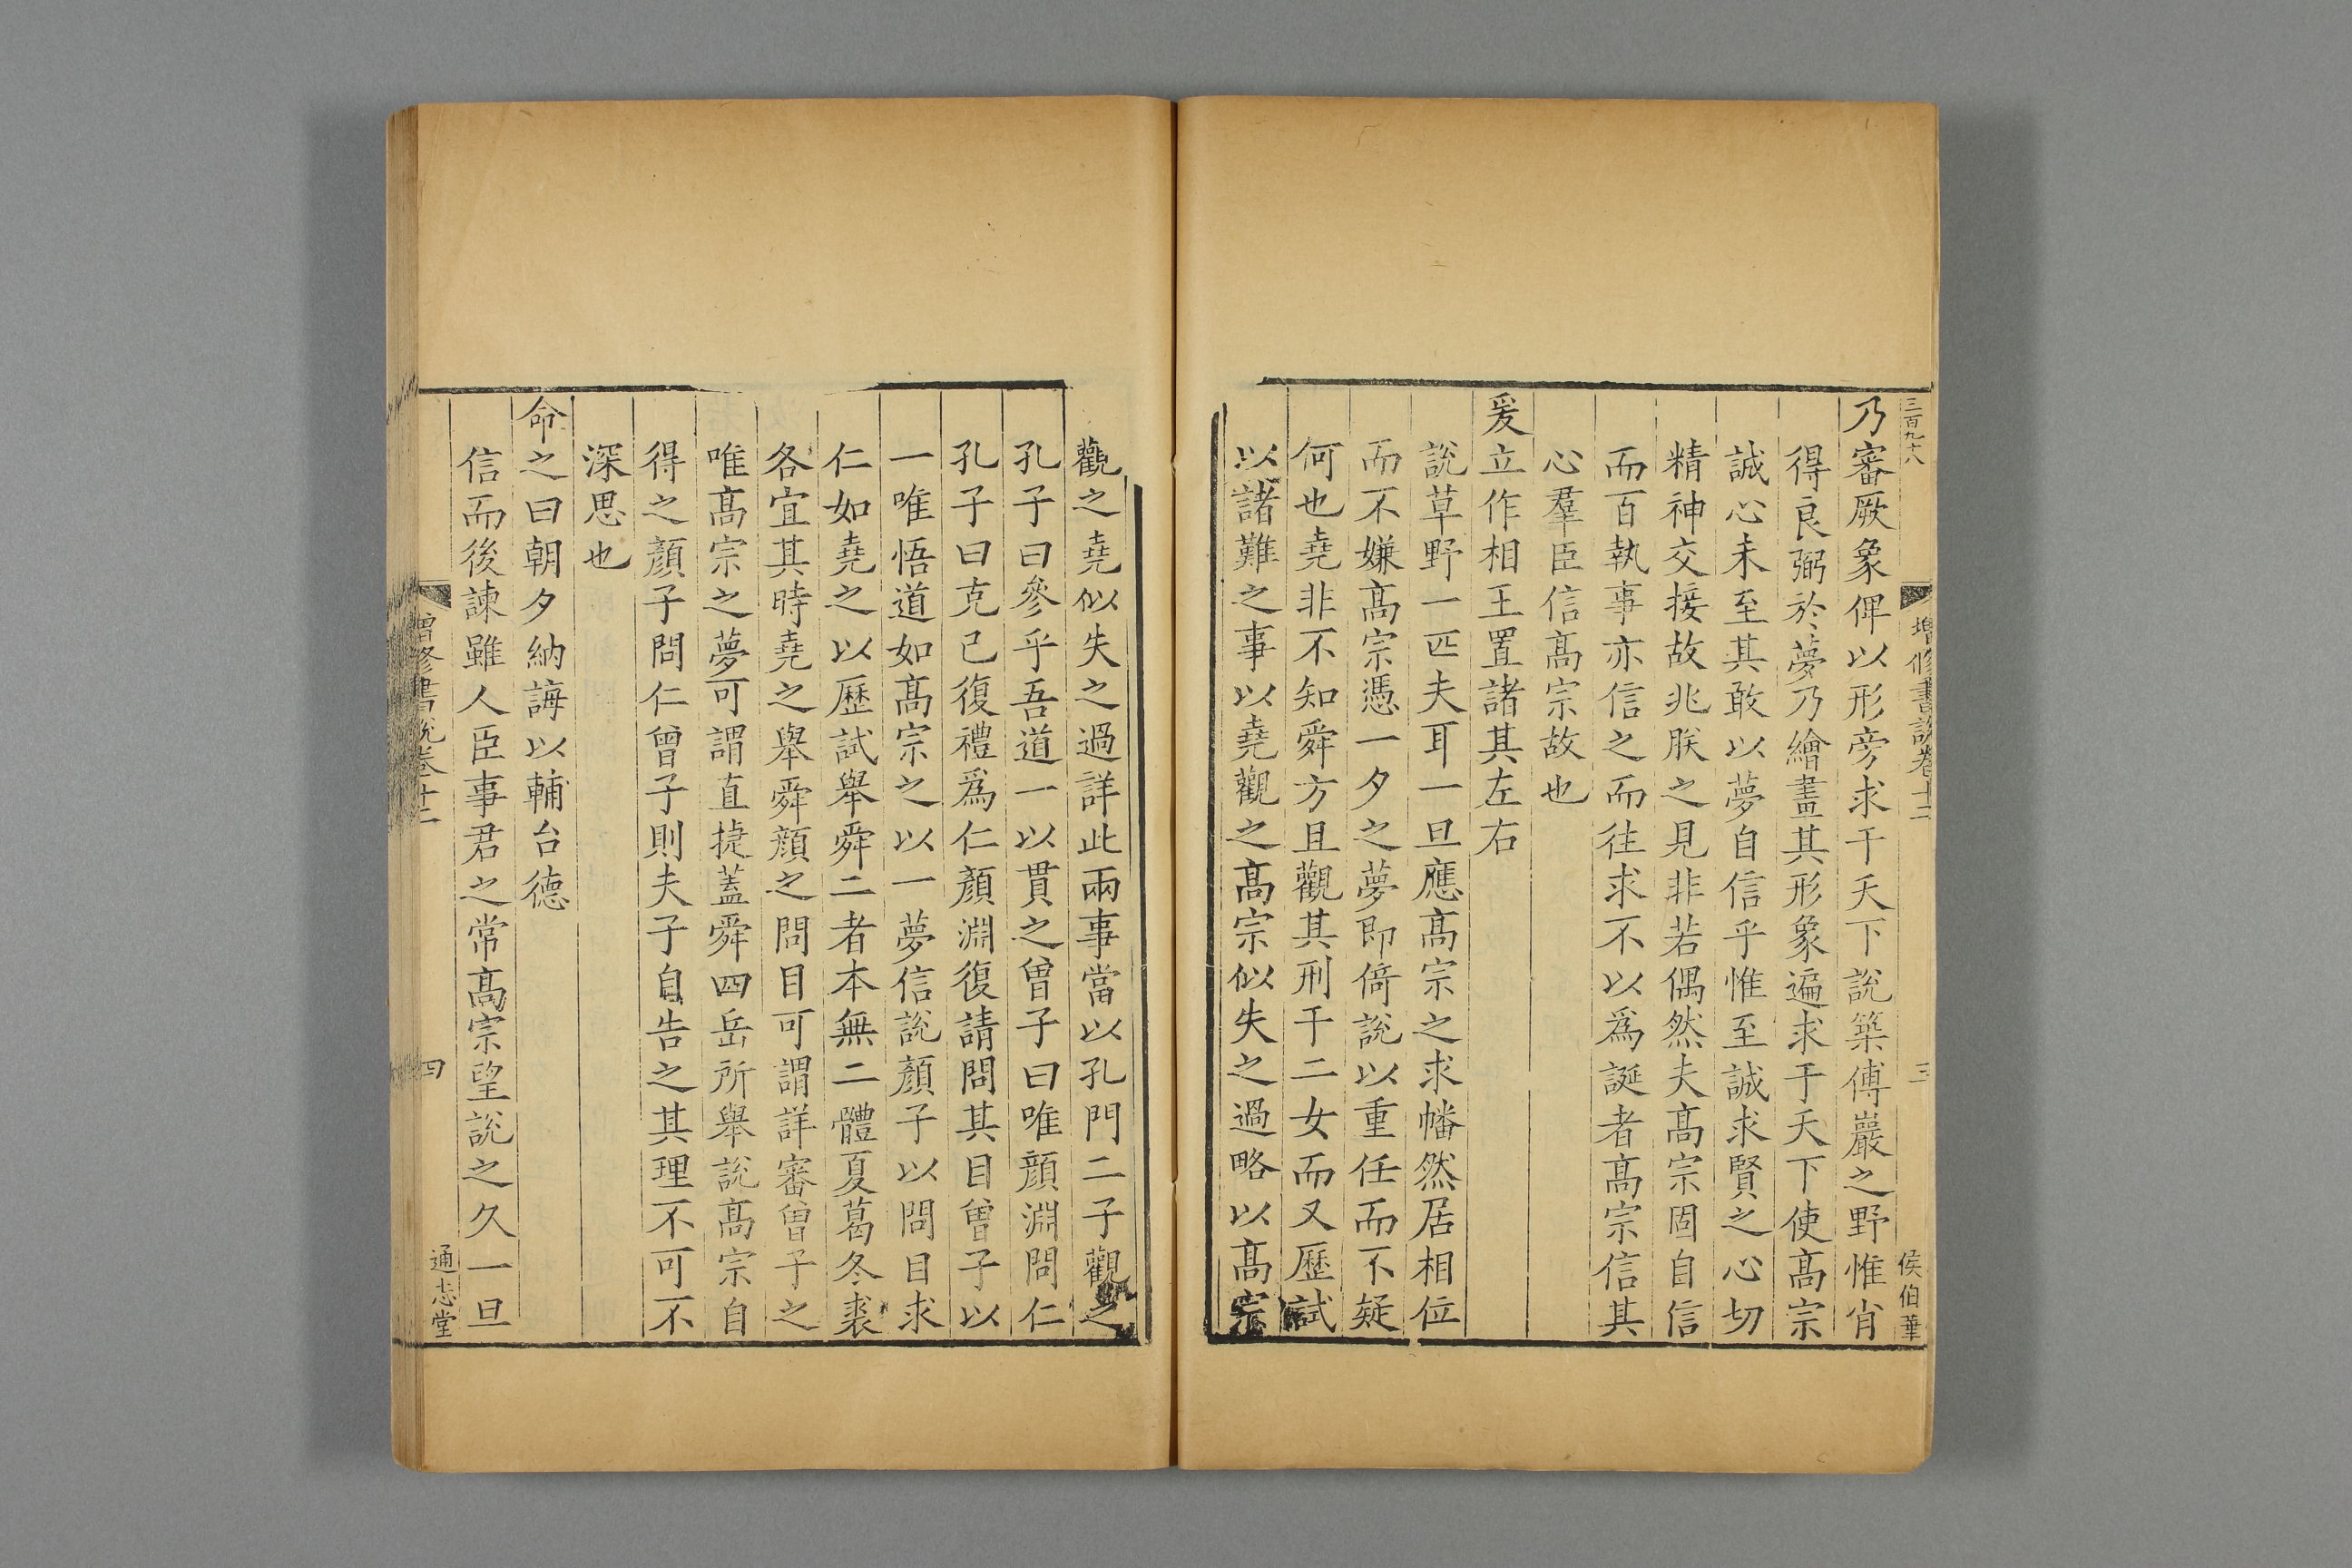 三百九十八
增修書說卷十二
三
侯伯華
乃審厥象俾以形旁求于天下說築傅巖之野惟肖
得良弼於夢乃繪畫其形象遍求于天下使高宗
誠心未至其敢以夢自信乎惟至誠求賢之心切
精神交接故兆朕之見非若偶然夫高宗固自信
而百執事亦信之而往求不以爲誕者高宗信其
心羣臣信高宗故也
爰立作相王置諸其左右
說草野一匹夫耳一旦應高宗之求幡然居相位
而不嫌高宗憑一夕之夢即倚說以重任而不疑
何也堯非不知舜方且觀其刑于二女而又歷試
以諸難之事以堯觀之高宗似失之過略以高宗
觀之堯似失之過詳此兩事當以孔門二子觀之
孔子曰參乎吾道一以貫之曾子曰唯顏淵問仁
孔子曰克己復禮爲仁顏淵復請問其目曾子以
一唯悟道如高宗之以一夢信說顏子以問目求
仁如堯之以歷試舉舜二者本無二體夏葛冬裘
各宜其時堯之舉舜顏之問目可謂詳審曾子之
唯高宗之夢可謂直捷蓋舜四岳所舉說高宗自
得之顏子問仁曾子則夫子自告之其理不可不
深思也
命之曰朝夕納誨以輔台德
信而後諫雖人臣事君之常高宗望說之久一旦
增修書說卷十二
四
通志堂